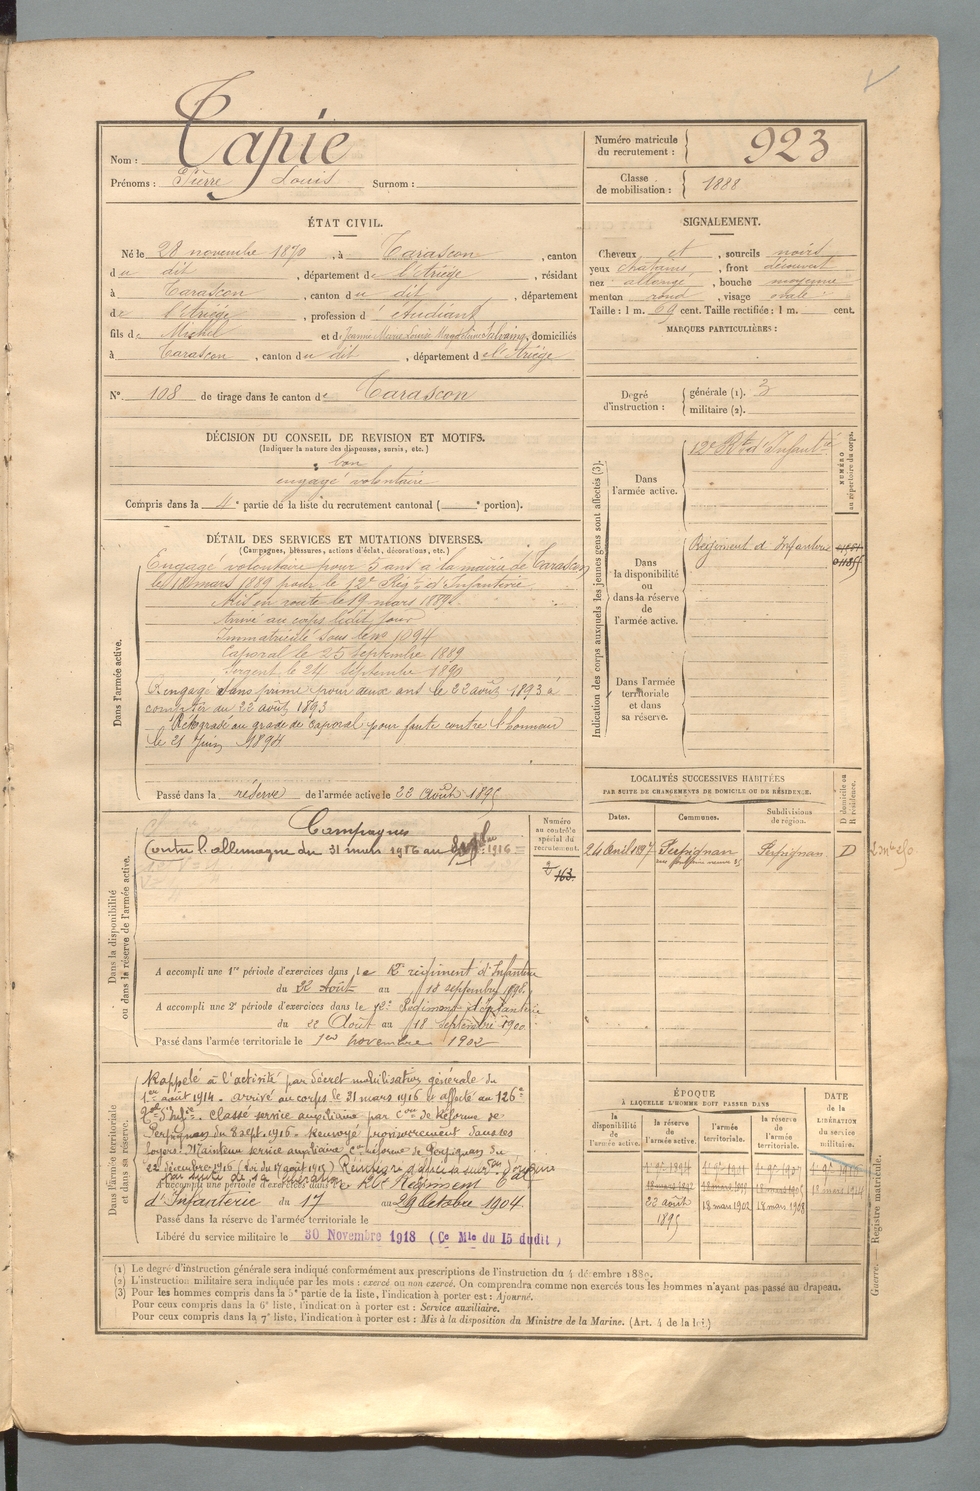 Nom : Tapie
Prénoms : Pierre Louis Surnom :
Numéro matricule du recrutement : 923
Classe de mobilisation : 1888
ÉTAT CIVIL.
Né le 28 novembre 1870, à Tarascon, canton
du dit, département de l'Ariège, résidant
à Tarascon, canton du dit, département
de l'Ariège, profession d'étudiant
fils de Michel et de Jeanne Marie Louise Magdeleine Salvaing, domiciliés
à Tarascon, canton du dit, département de l'Ariège
N° 108 de tirage dans le canton de Tarascon
SIGNALEMENT.
Cheveux et, sourcils noirs
yeux châtains, front découvert
nez allongé, bouche moyenne
menton rond, visage ovale
Taille : 1 m. 69 cent. Taille rectifiée : 1 m. cent.
MARQUES PARTICULIÈRES :
Degré d'instruction : générale (1). 3
militaire (2).
DÉCISION DU CONSEIL DE REVISION ET MOTIFS.
(Indiquer la nature des dispenses, sursis, etc.)
bon
engagé volontaire
Compris dans la 4e partie de la liste du recrutement cantonal ( e portion).
DÉTAIL DES SERVICES ET MUTATIONS DIVERSES.
(Campagnes, blessures, actions d'éclat, décorations, etc.)
Dans l'armée active.
Engagé volontaire pour 5 ans à la mairie de Tarascon
le 18 mars 1889 pour le 12e Régt d'Infanterie
Mis en route le 19 mars 1889.
Arrivé au corps ledit jour
Immatriculé sous le no 1094
Caporal le 25 septembre 1889
Sergent le 24 septembre 1890
Rengagé sans prime pour deux ans le 22 août 1893 à
compter du 22 août 1893
Rétrogradé au grade de caporal pour faute contre l'honneur
le 21 Juin 1894
Passé dans la réserve de l'armée active le 22 Août 1895
Indication des corps auxquels les jeunes gens sont affectés (3).
Dans l'armée active.
12e Rt d'Infanté
NUMÉRO au répertoire du corps.
Dans la disponibilité ou dans la réserve de l'armée active.
Régiment d'Infanterie
Dans l'armée territoriale et dans sa réserve.
LOCALITÉS SUCCESSIVES HABITÉES
PAR SUITE DE CHANGEMENTS DE DOMICILE OU DE RÉSIDENCE.
Dates. Communes. Subdivisions de région. D domicile ou R résidence.
24 Avril 1897 Perpignan Perpignan D
Dans la disponibilité ou dans la réserve de l'armée active.
Numéro au contrôle spécial du recrutement.
163
Campagnes
Contre l'allemagne du 31 mars 1916 au 1916
A accompli une 1re période d'exercices dans le 12e régiment d'Infanterie
du 22 Août au 18 septembre 1898.
A accompli une 2e période d'exercices dans le 12e Régiment d'Infanterie
du 22 Août au 18 septembre 1900
Passé dans l'armée territoriale le 1er novembre 1902
Dans l'armée territoriale et dans sa réserve.
Rappelé à l'activité par décret mobilisation générale du
1er août 1914. Arrivé au corps le 31 mars 1916 et affecté au 126e
d'Infie. Classé service auxiliaire par Con de Réforme de
Perpignan du 8 sept. 1916. Renvoyé provisoirement dans ses
foyers. Maintenu service auxiliaire Con réforme de Perpignan du
22 décembre 1916
A accompli une période d'exercices dans le 126e Régiment Tal
d'Infanterie du 17 au 29 Octobre 1904.
Passé dans la réserve de l'armée territoriale le
Libéré du service militaire le 30 Novembre 1918 (Ce Mle du 15 dudit)
ÉPOQUE
À LAQUELLE L'HOMME DOIT PASSER DANS
la disponibilité de l'armée active. la réserve de l'armée active. l'armée territoriale. la réserve de l'armée territoriale. DATE de la LIBÉRATION du service militaire.
22 août 1895 18 mars 1902 18 mars 1908
(1) Le degré d'instruction générale sera indiqué conformément aux prescriptions de l'instruction du 4 décembre 1889.
(2) L'instruction militaire sera indiquée par les mots : exercé ou non exercé. On comprendra comme non exercés tous les hommes n'ayant pas passé au drapeau.
(3) Pour les hommes compris dans la 5e partie de la liste, l'indication à porter est : Ajourné.
Pour ceux compris dans la 6e liste, l'indication à porter est : Service auxiliaire.
Pour ceux compris dans la 7e liste, l'indication à porter est : Mis à la disposition du Ministre de la Marine. (Art. 4 de la loi.)
Guerre. — Registre matricule.